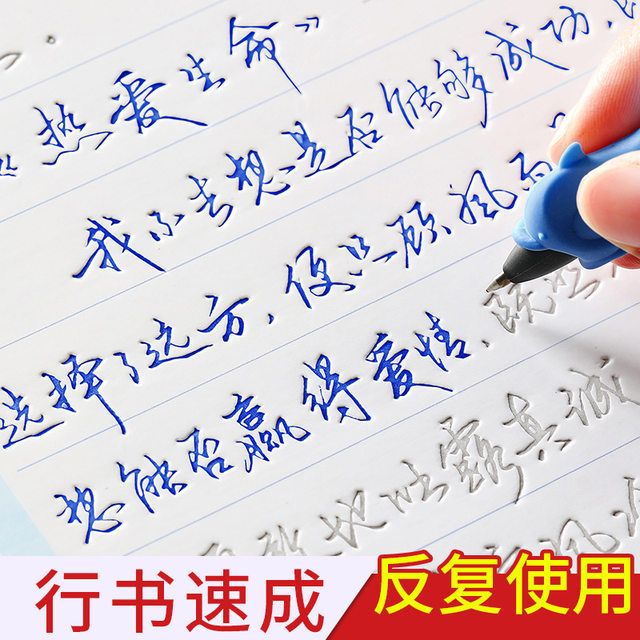 《热爱生命》
我不去想是否能够成功,
选择了远方,便只顾風雨
想能否赢得爱情,既然
勇敢地吐露真诚
行书速成
反复使用